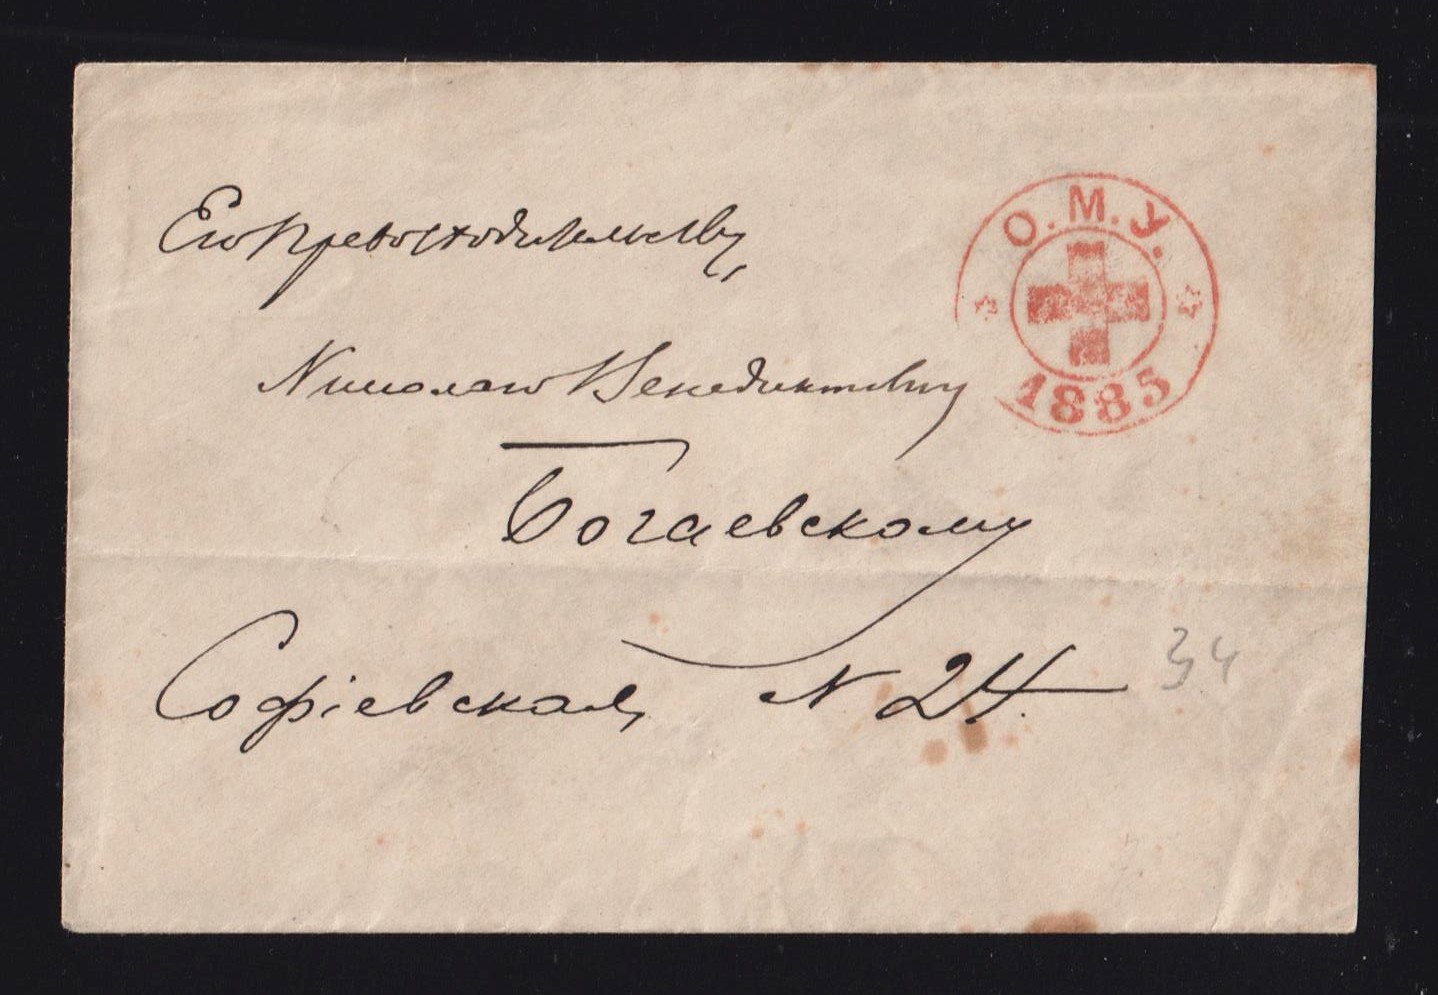 Его Превосходительству
О. М. У.
Николаю Венедиктовичу
1885
Богаевскому
Софiевская, N 24.
34